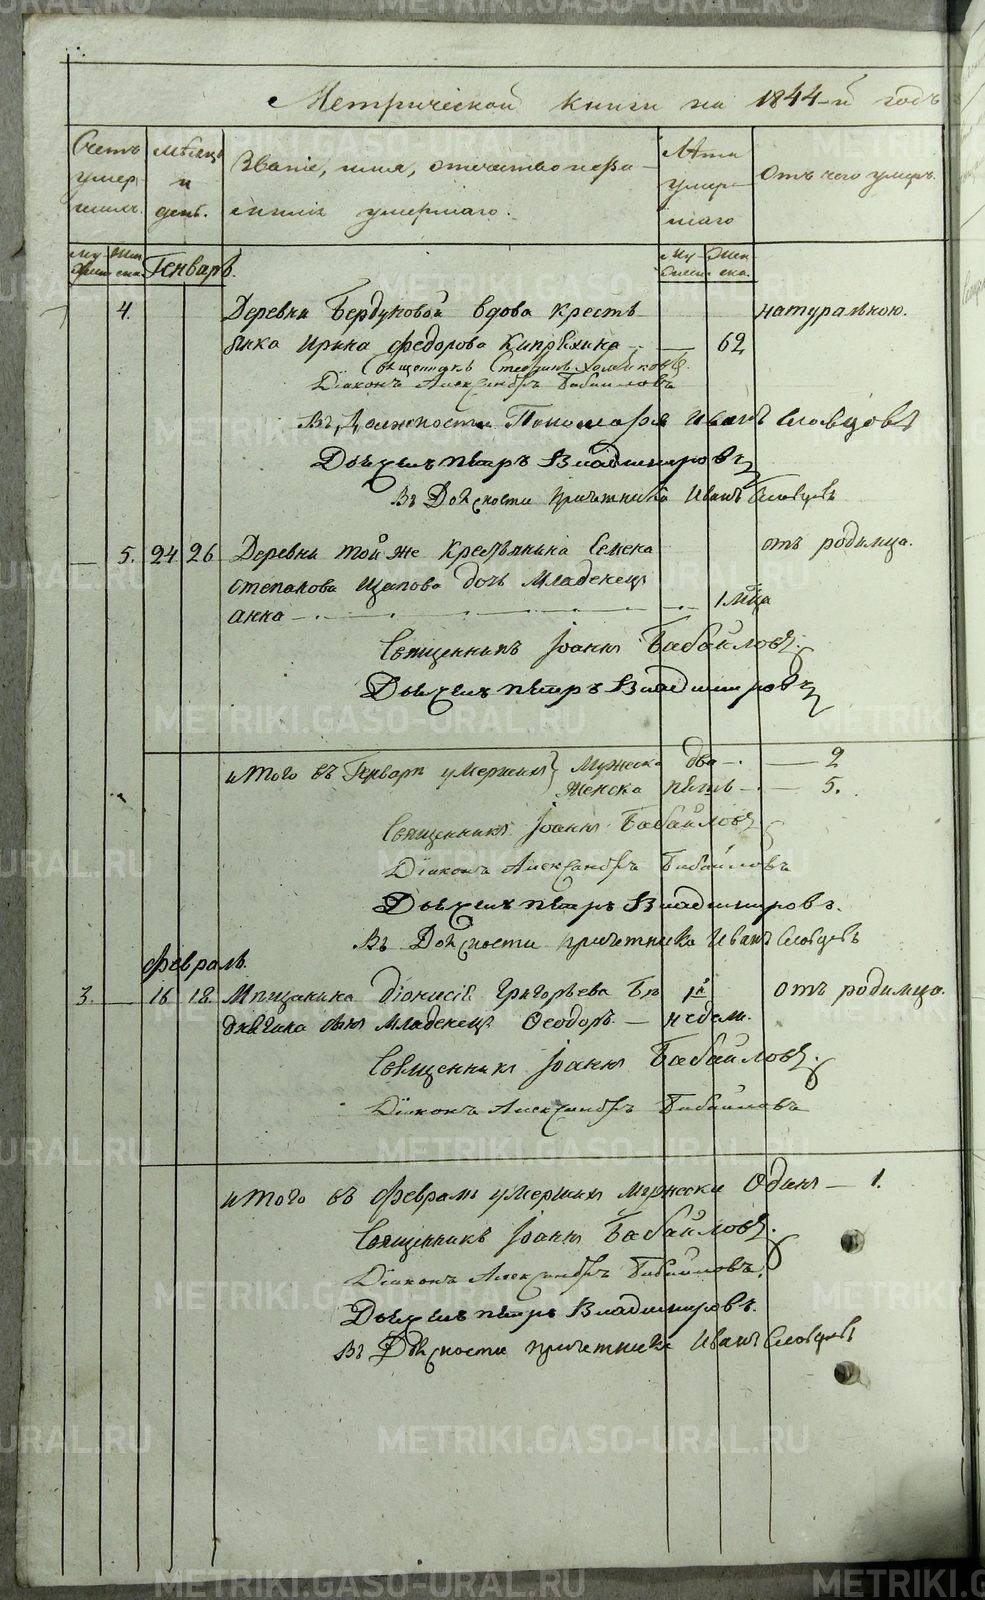 Метрической книги на 1844-й годъ
Счетъ умершихъ.
Мѣсяцъ и день.
Званіе, имя, отчество и фамилія умершаго.
Лѣта умершаго
Отъ чего умеръ.
Генварь.
4. Деревни Бердуковой вдова крестьянка Ирина Федорова 62 натуральною.
Діаконъ Александръ Бабайловъ
Въ Должности Пономаря Иванъ Словцовъ
Дьячекъ Петръ Владимировъ
Въ Должности причетника Иванъ Словцовъ
5. 24 26 Деревни той же Крестьянина Семена отъ родимца.
степанова Щапова дочь Младенецъ
анна 1 мца
Священникъ Іоаннъ Бабайловъ.
Дьячекъ Петръ Владимировъ
итого въ Генварѣ умершихъ Мужеска два — 2
Женска пять — 5.
Священникъ Іоаннъ Бабайловъ
Діаконъ Александръ Бабайловъ
Дьячекъ Петръ Владимировъ.
Въ Должности причетника Иванъ Словцовъ
Февраль.
3. — 16 18 Мѣщанина Діонисія Григорьева 1й отъ родимца.
сынъ Младенецъ Ѳеодоръ — недели.
Священникъ Іоаннъ Бабайловъ.
Діаконъ Александръ Бабайловъ
итого въ Февралѣ умершихъ мужеска Одинъ — 1.
Священникъ Іоаннъ Бабайловъ.
Діаконъ Александръ Бабайловъ.
Дьячекъ Петръ Владимировъ.
Въ Должности причетника Иванъ Словцовъ
METRIKI.GASO-URAL.RU